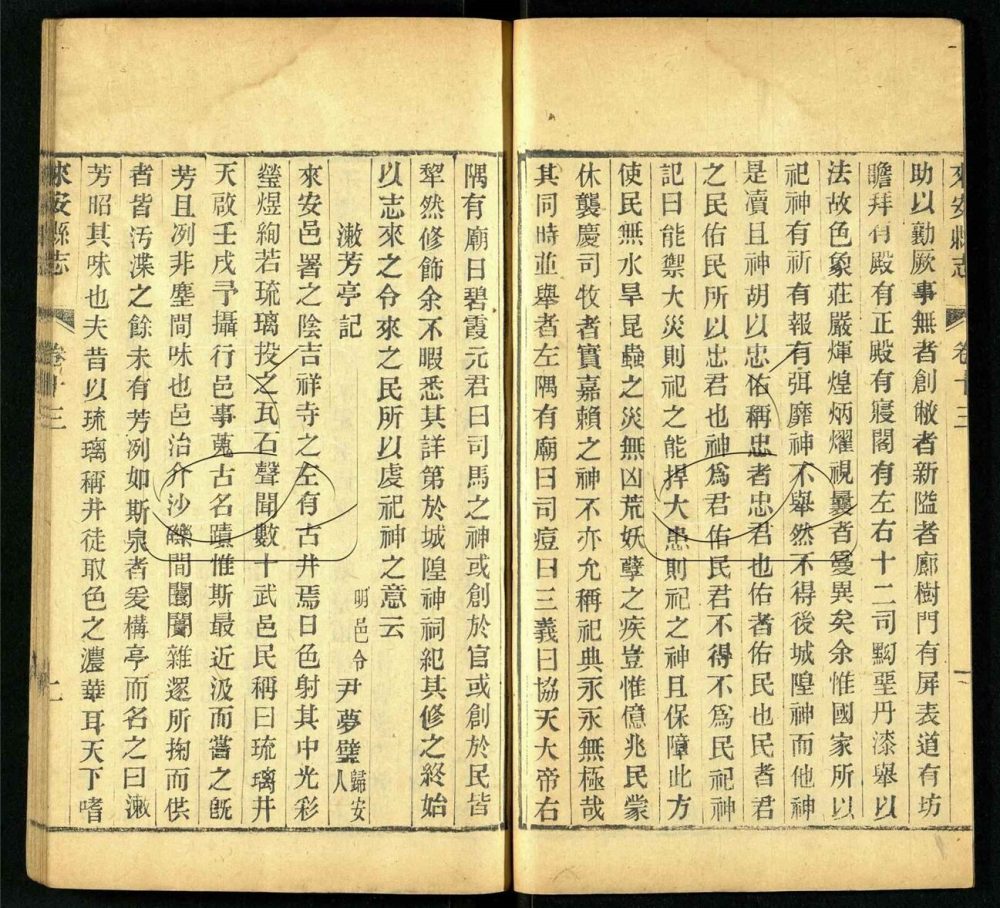 來安縣志
卷十三
一
助以勷厥事無者創敝者新隘者廓樹門有屏表道有坊
瞻拜有殿有正殿有寢閣有左右十二司黝堊丹漆舉以
法故色象莊嚴煇煌炳燿視曩者曼異矣余惟國家所以
祀神有祈有報有弭靡神不舉然不得後城隍神而他神
是瀆且神胡以忠佑稱忠者忠君也佑者佑民也民者君
之民佑民所以忠君也神爲君佑民君不得不爲民祀神
記曰能禦大災則祀之能捍大患則祀之神且保障此方
使民無水旱昆蟲之災無凶荒妖孽之疾豈惟億兆民蒙
休襲慶司牧者實嘉賴之神不亦允稱祀典永永無極哉
其同時並舉者左隅有廟曰司痘曰三義曰協天大帝右
隅有廟曰碧霞元君曰司馬之神或創於官或創於民皆
犂然修飾余不暇悉其詳第於城隍神祠紀其修之終始
以志來之令來之民所以虔祀神之意云
漱芳亭記
明邑令 尹夢璧 歸安人
來安邑署之陰吉祥寺之左有古井焉日色射其中光彩
瑩煜絢若琉璃投之瓦石聲聞數十武邑民稱曰琉璃井
天啟壬戌予攝行邑事蒐古名蹟惟斯最近汲而嘗之旣
芳且冽非塵間味也邑治介沙礫間闤闠雜遝所掬而供
者皆汚渫之餘未有芳冽如斯泉者爰構亭而名之曰漱
芳昭其味也夫昔以琉璃稱井徒取色之濃華耳天下嗜
來安縣志
卷十三
二